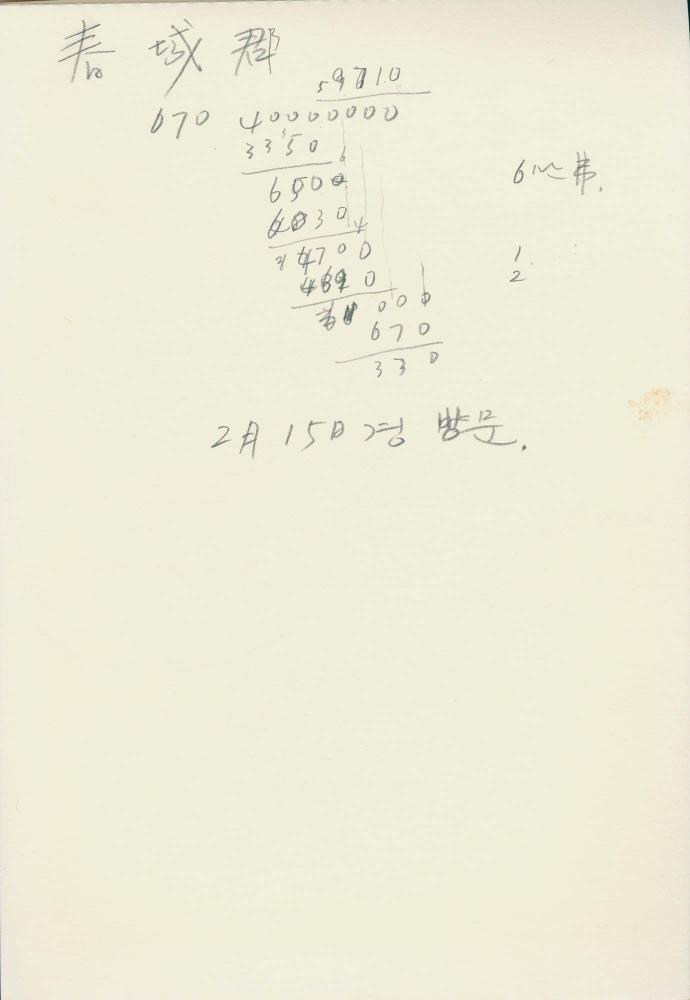 春城郡
59710
670 40000000
3350
6500
6030
4700
4690
1000
670
330
6
1
2
2月 15日경 방문.